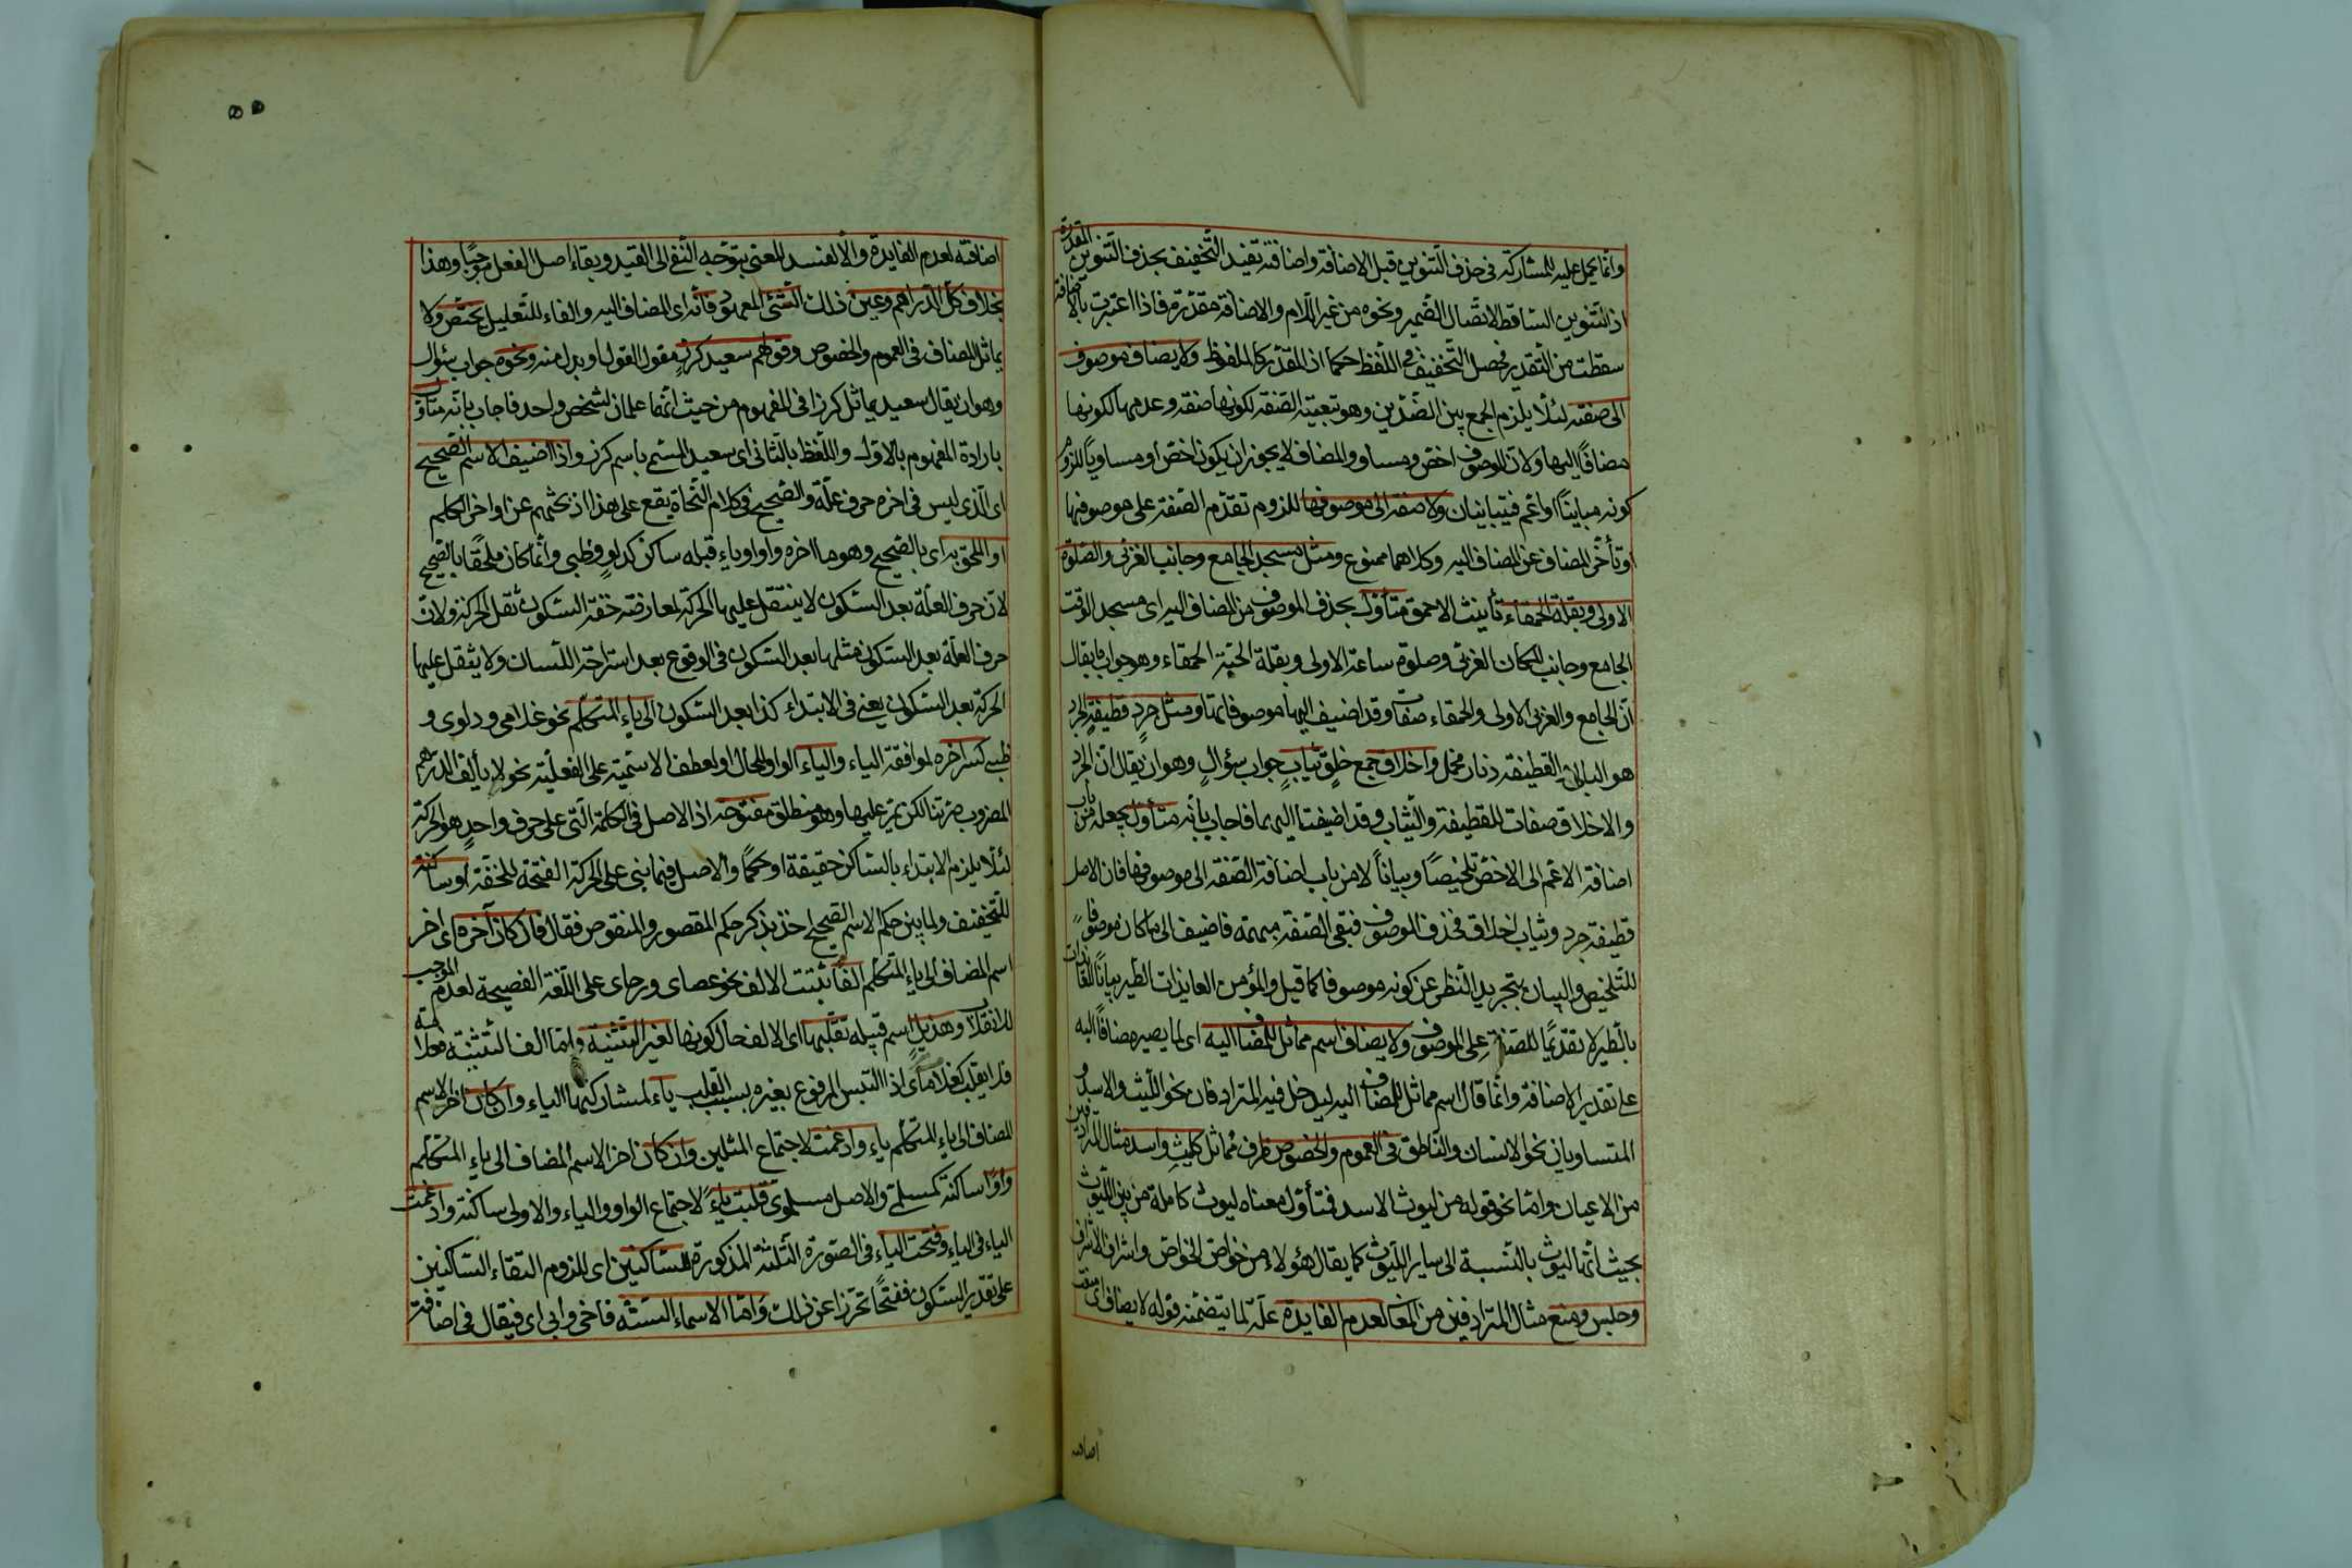 وانما يحمل عليه للمشاركة في حذف التنوين قبل الاضافة واضافته تفيد التخفيف بحذف التنوين المقدرة
اذ التنوين الساقط لاتصال الضمير ونحوه من غير اللام والاضافة مقدرة فاذا اعتبرت بالاضافة
سقطت من التقدير فحصل التخفيف في اللفظ حكما اذ المقدر كالملفوظ ولا يضاف موصوف
الى صفته لئلا يلزم الجمع بين الضدين وهو تبعيته الصفة لكونها صفة وعدمها لكونها
مضافا اليها ولان الموصوف اخص ومساو والمضاف لا يجوز ان يكون اخص او مساويا للزوم
كونه مباينا او اعم فيتباينان ولا صفة الى موصوفها للزوم تقدم الصفة على موصوفها
او تأخر المضاف عن المضاف اليه وكلاهما ممنوع ومثل مسجد الجامع وجانب الغربي والصلوة
الاولى وبقلة الحمقاء تأنيث الاحمق متأول بحذف الموصوف من المضاف اليه اى مسجد الوقت
الجامع وجانب المكان الغربي وصلوة ساعة الاولى وبقلة الحبة الحمقاء وهو جواب ما يقال
ان الجامع والغربي والاولى والحمقاء صفات وقد اضيف اليها موصوفاتها ومثل جرد قطيفة الجرد
هو البالي القطيفة دثار مخمل واخلاق جمع خلق ثياب جواب سؤال وهو ان يقال ان الجرد
والاخلاق صفات للقطيفة والثياب وقد اضيفتا اليهما فاجاب بأنه متأول بجعله من باب
اضافة الاعم الى الاخص تلخيصا وبيانا لا من باب اضافة الصفة الى موصوفها فان الاصل
قطيفة جرد وثياب اخلاق فحذف الموصوف فبقى الصفة مبهمة فاضيف الى ما كان موصوفا
للتلخيص والبيان بتجريد النظر عن كونه موصوفا كما قيل والمؤمن العايذات الطير بيانا للعايذات
بالطير لا تقديما للصفة على الموصوف ولا يضاف اسم مماثل للمضاف اليه اى لما يصير مضافا اليه
على تقدير الاضافة وانما قال اسم مماثل للمضاف اليه ليدخل فيه المترادفان نحو الليث والاسد و
المتساويان نحو الانسان والناطق في العموم والخصوص ظرف مماثل كليث واسد مثال المترادفين
من الاعيان واما نحو قوله من ليوث الاسد فتأول معناه ليوث كاملة من بين الليوث
بحيث انها ليوث بالنسبة الى ساير الليوث كما يقال هؤلاء من خواص الخواص واشراف الاشراف
وحبس ومنع مثال المترادفين من المعاني لعدم الفايدة علة لما يتضمنه قوله لا يضاف اى
اضافته
اضافته لعدم الفايدة والا لفسد المعنى بتوجه النفي الى القيد وبقاء اصل الفعل موجبا وهذا
بخلاف كل الدراهم وعين ذلك الشئى المعهود فانه اى المضاف اليه والفاء للتعليل يختص ولا
يماثل المضاف في العموم والخصوص وقولهم سعيد كرز مقول القول او بدل منه ونحوه جواب سؤال
وهو ان يقال سعيد يماثل كرزا في المفهوم من حيث انهما علمان لشخص واحد فاجاب بأنه متأول
بارادة المفهوم بالاول واللفظ بالثاني اى سعيد المسمى باسم كرز واذا اضيف الاسم الصحيح
اى الذى ليس في اخره حرف علة والصحيح في كلام النحاة يقع على هذا اذ بحثهم عن اواخر الكلم
او الملحق به اى بالصحيح وهو ما اخره واو او ياء قبله ساكن كدلو وظبى وانما كان ملحقا بالصحيح
لان حرف العلة بعد السكون لا يثقل عليها الحركة لمعارضة خفة السكون ثقل الحركة ولان
حرف العلة بعد السكون مثلها بعد السكوت في الوقوع بعد استراحة اللسان ولا يثقل عليها
الحركة بعد السكوت يعنى في الابتداء كذا بعد السكون الى ياء المتكلم نحو غلامى ودلوى و
ظبيى كسر اخره لموافقة الياء والياء الواو للحال او لعطف الاسمية على الفعلية نحو لا يألف الدرهم
المضروب صرتنا لكن يمر عليها وهو منطلق مفتوحة اذ الاصل في الكلمة التى على حرف واحد هو الحركة
لئلا يلزم الابتداء بالساكن حقيقة او حكما والاصل فيما بنى على الحركة الفتحة للخفة او ساكنة
للتخفيف ولما بين حكم الاسم الصحيح اخذ بذكر حكم المقصور والمنقوص فقال فان كان آخره اى اخر
اسم المضاف الى ياء المتكلم الفا تثبت الالف نحو عصاى ورحاى على اللغة الفصيحة لعدم الموجب
للانقلاب وهذيل اسم قبيلة تقلبها اى الالف حال كونها لغير التثنية واما الف التثنية
فلا يقلب كغلاماى اذا التبس المرفوع بغيره بسبب القلب ياء لمشاركتها الياء وان كان اخر الاسم
المضاف الى ياء المتكلم ياء وادغمت لاجتماع المثلين وان كان اخر الاسم المضاف الى ياء المتكلم
واوا ساكنة كمسلمى والاصل مسلموى قلبت ياء لاجتماع الواو والياء والاولى ساكنة وادغمت
الياء في الياء وفتحت الياء في الصورة الثلثة المذكورة للساكنين اى للزوم التقاء الساكنين
على تقدير السكون ففتحا تحرزا عن ذلك واما الاسماء الستة فاخى وابى اى فيقال في اضافة